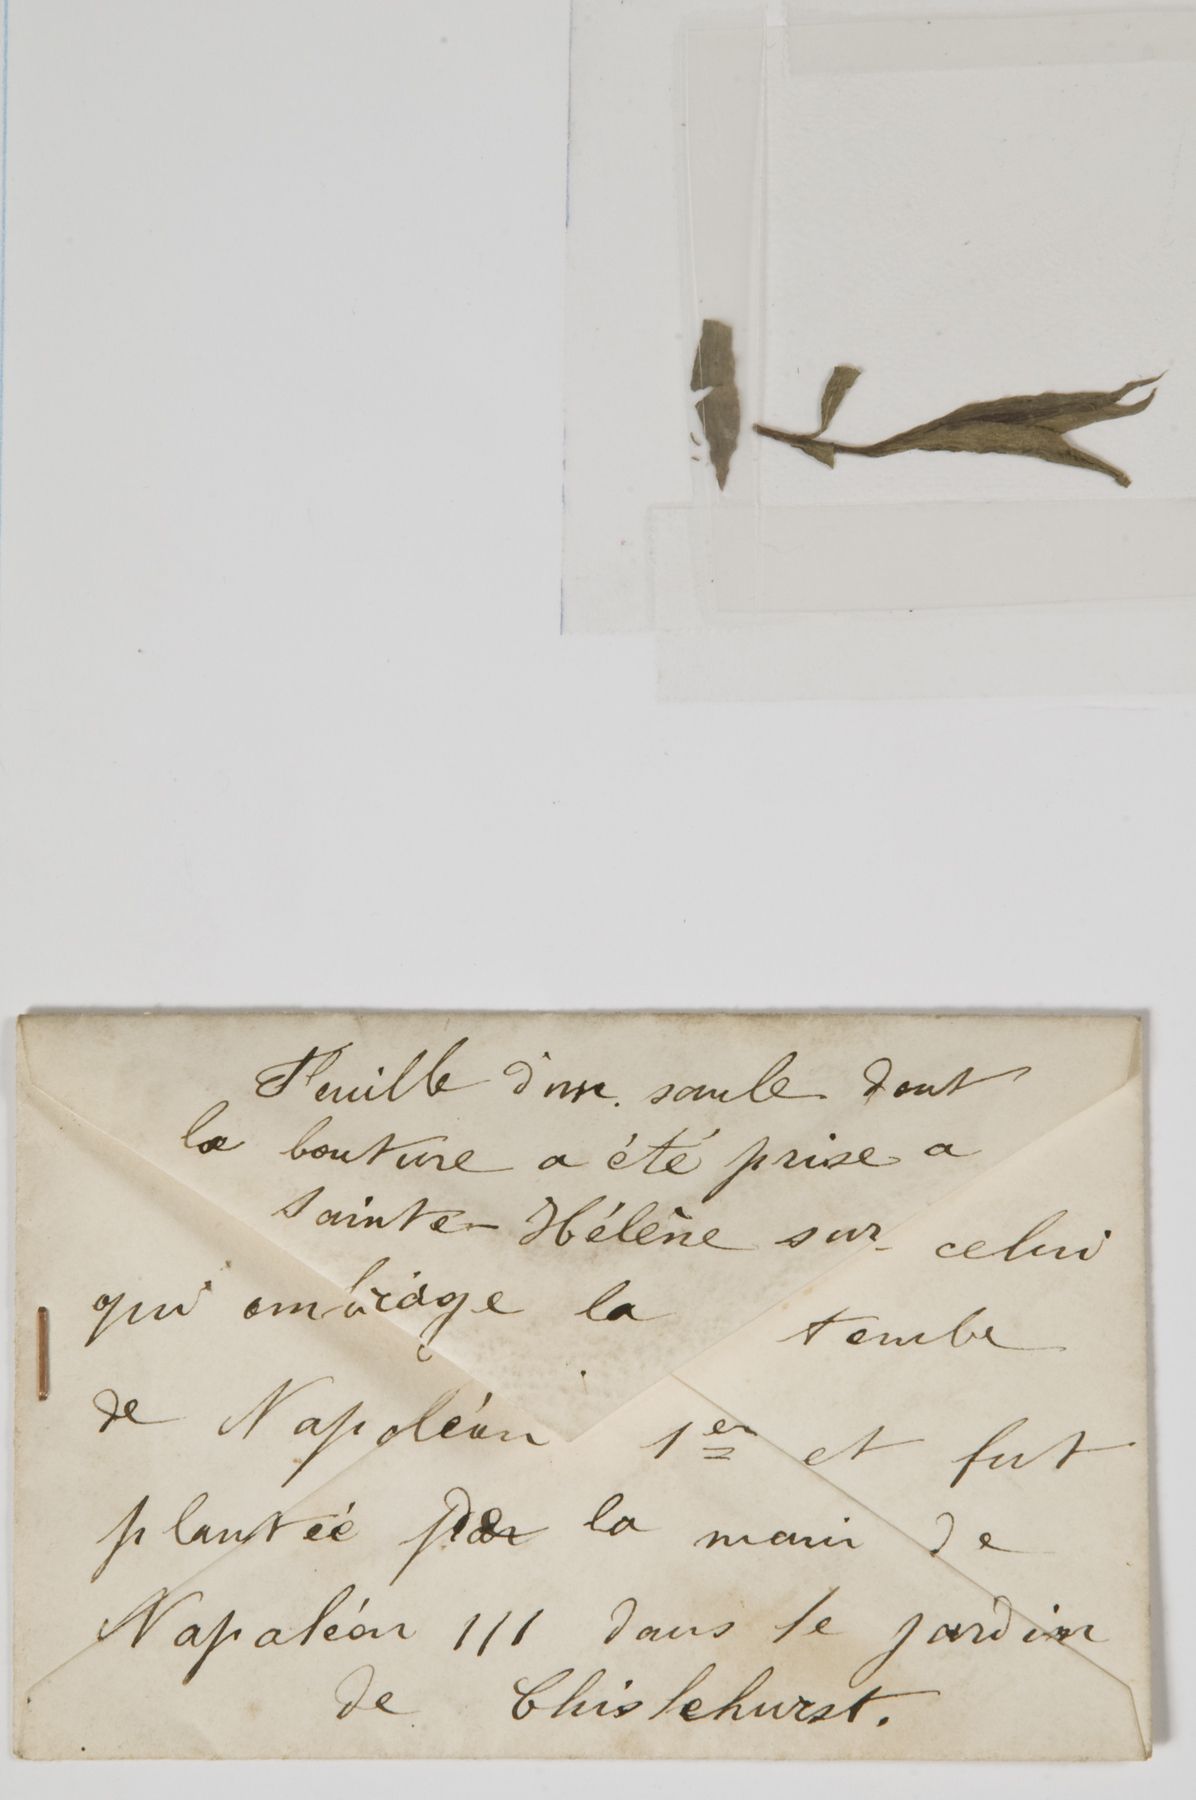 Feuille d'un saule dont
la bouture a été prise a
Sainte-Hélène sur celui
qui ombrage la tombe
de Napoléon 1er et fut
plantée par la main de
Napoléon III dans le jardin
de Chislehurst.